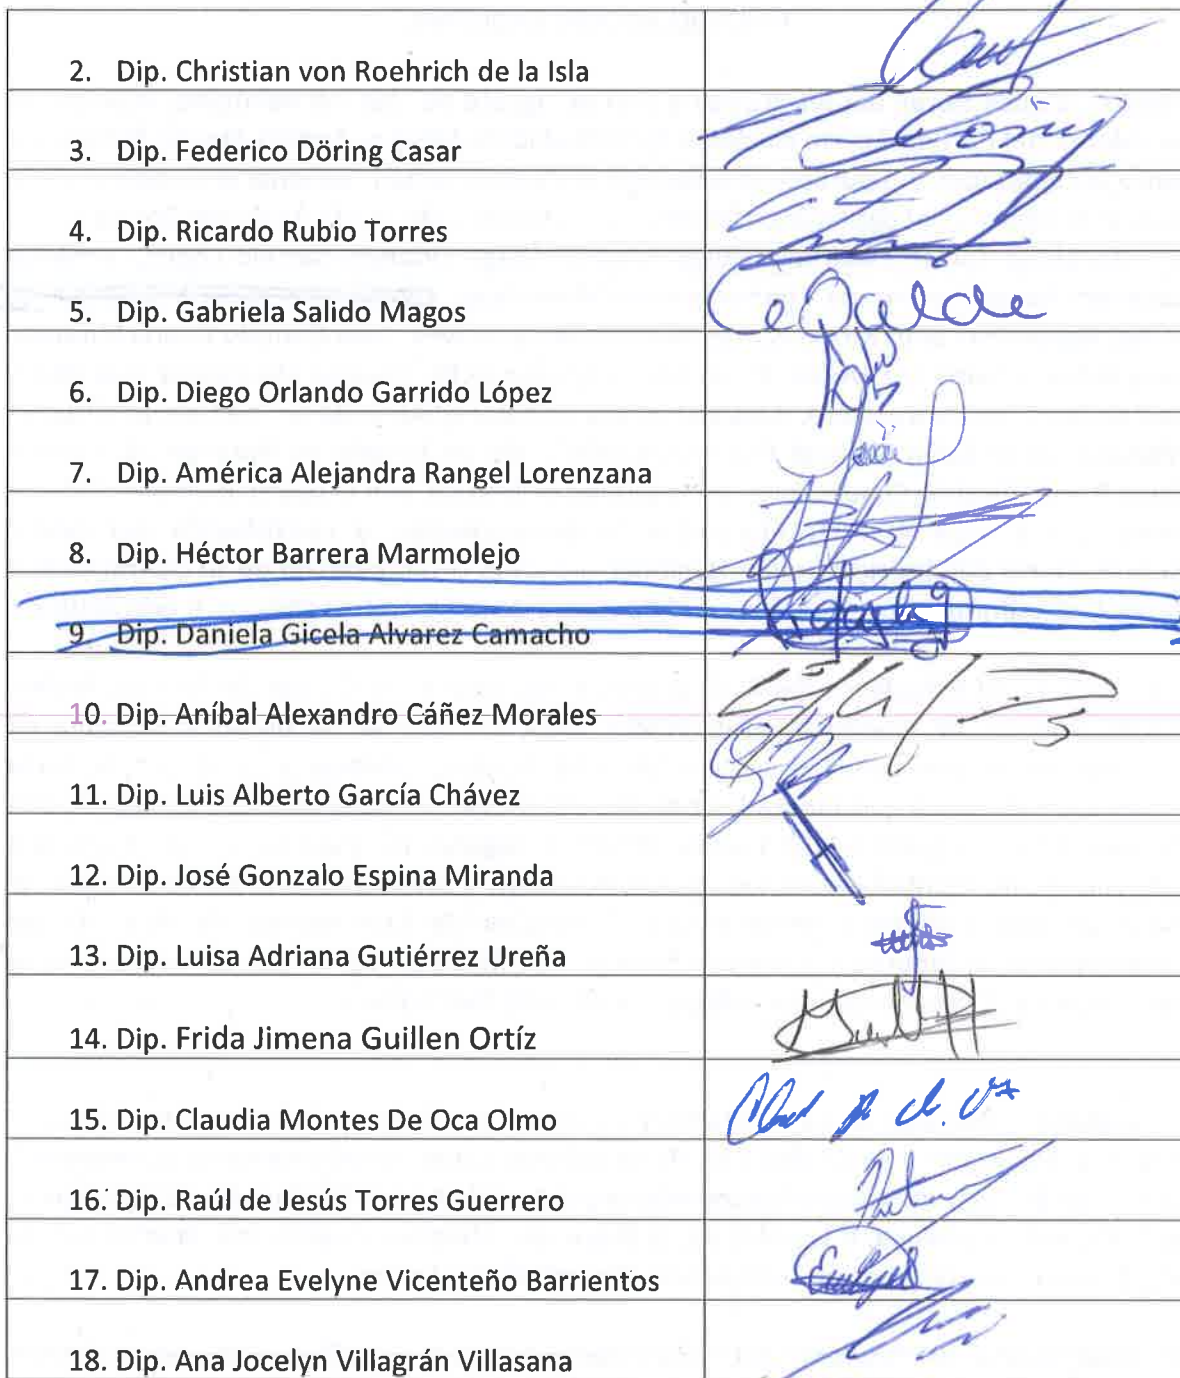 2. Dip. Christian von Roehrich de la Isla
3. Dip. Federico Döring Casar
4. Dip. Ricardo Rubio Torres
5. Dip. Gabriela Salido Magos
6. Dip. Diego Orlando Garrido López
7. Dip. América Alejandra Rangel Lorenzana
8. Dip. Héctor Barrera Marmolejo
9 Dip. Daniela Gicela Alvarez Camacho
10. Dip. Aníbal Alexandro Cáñez Morales
11. Dip. Luis Alberto García Chávez
12. Dip. José Gonzalo Espina Miranda
13. Dip. Luisa Adriana Gutiérrez Ureña
14. Dip. Frida Jimena Guillen Ortíz
15. Dip. Claudia Montes De Oca Olmo
16. Dip. Raúl de Jesús Torres Guerrero
17. Dip. Andrea Evelyne Vicenteño Barrientos
18. Dip. Ana Jocelyn Villagrán Villasana